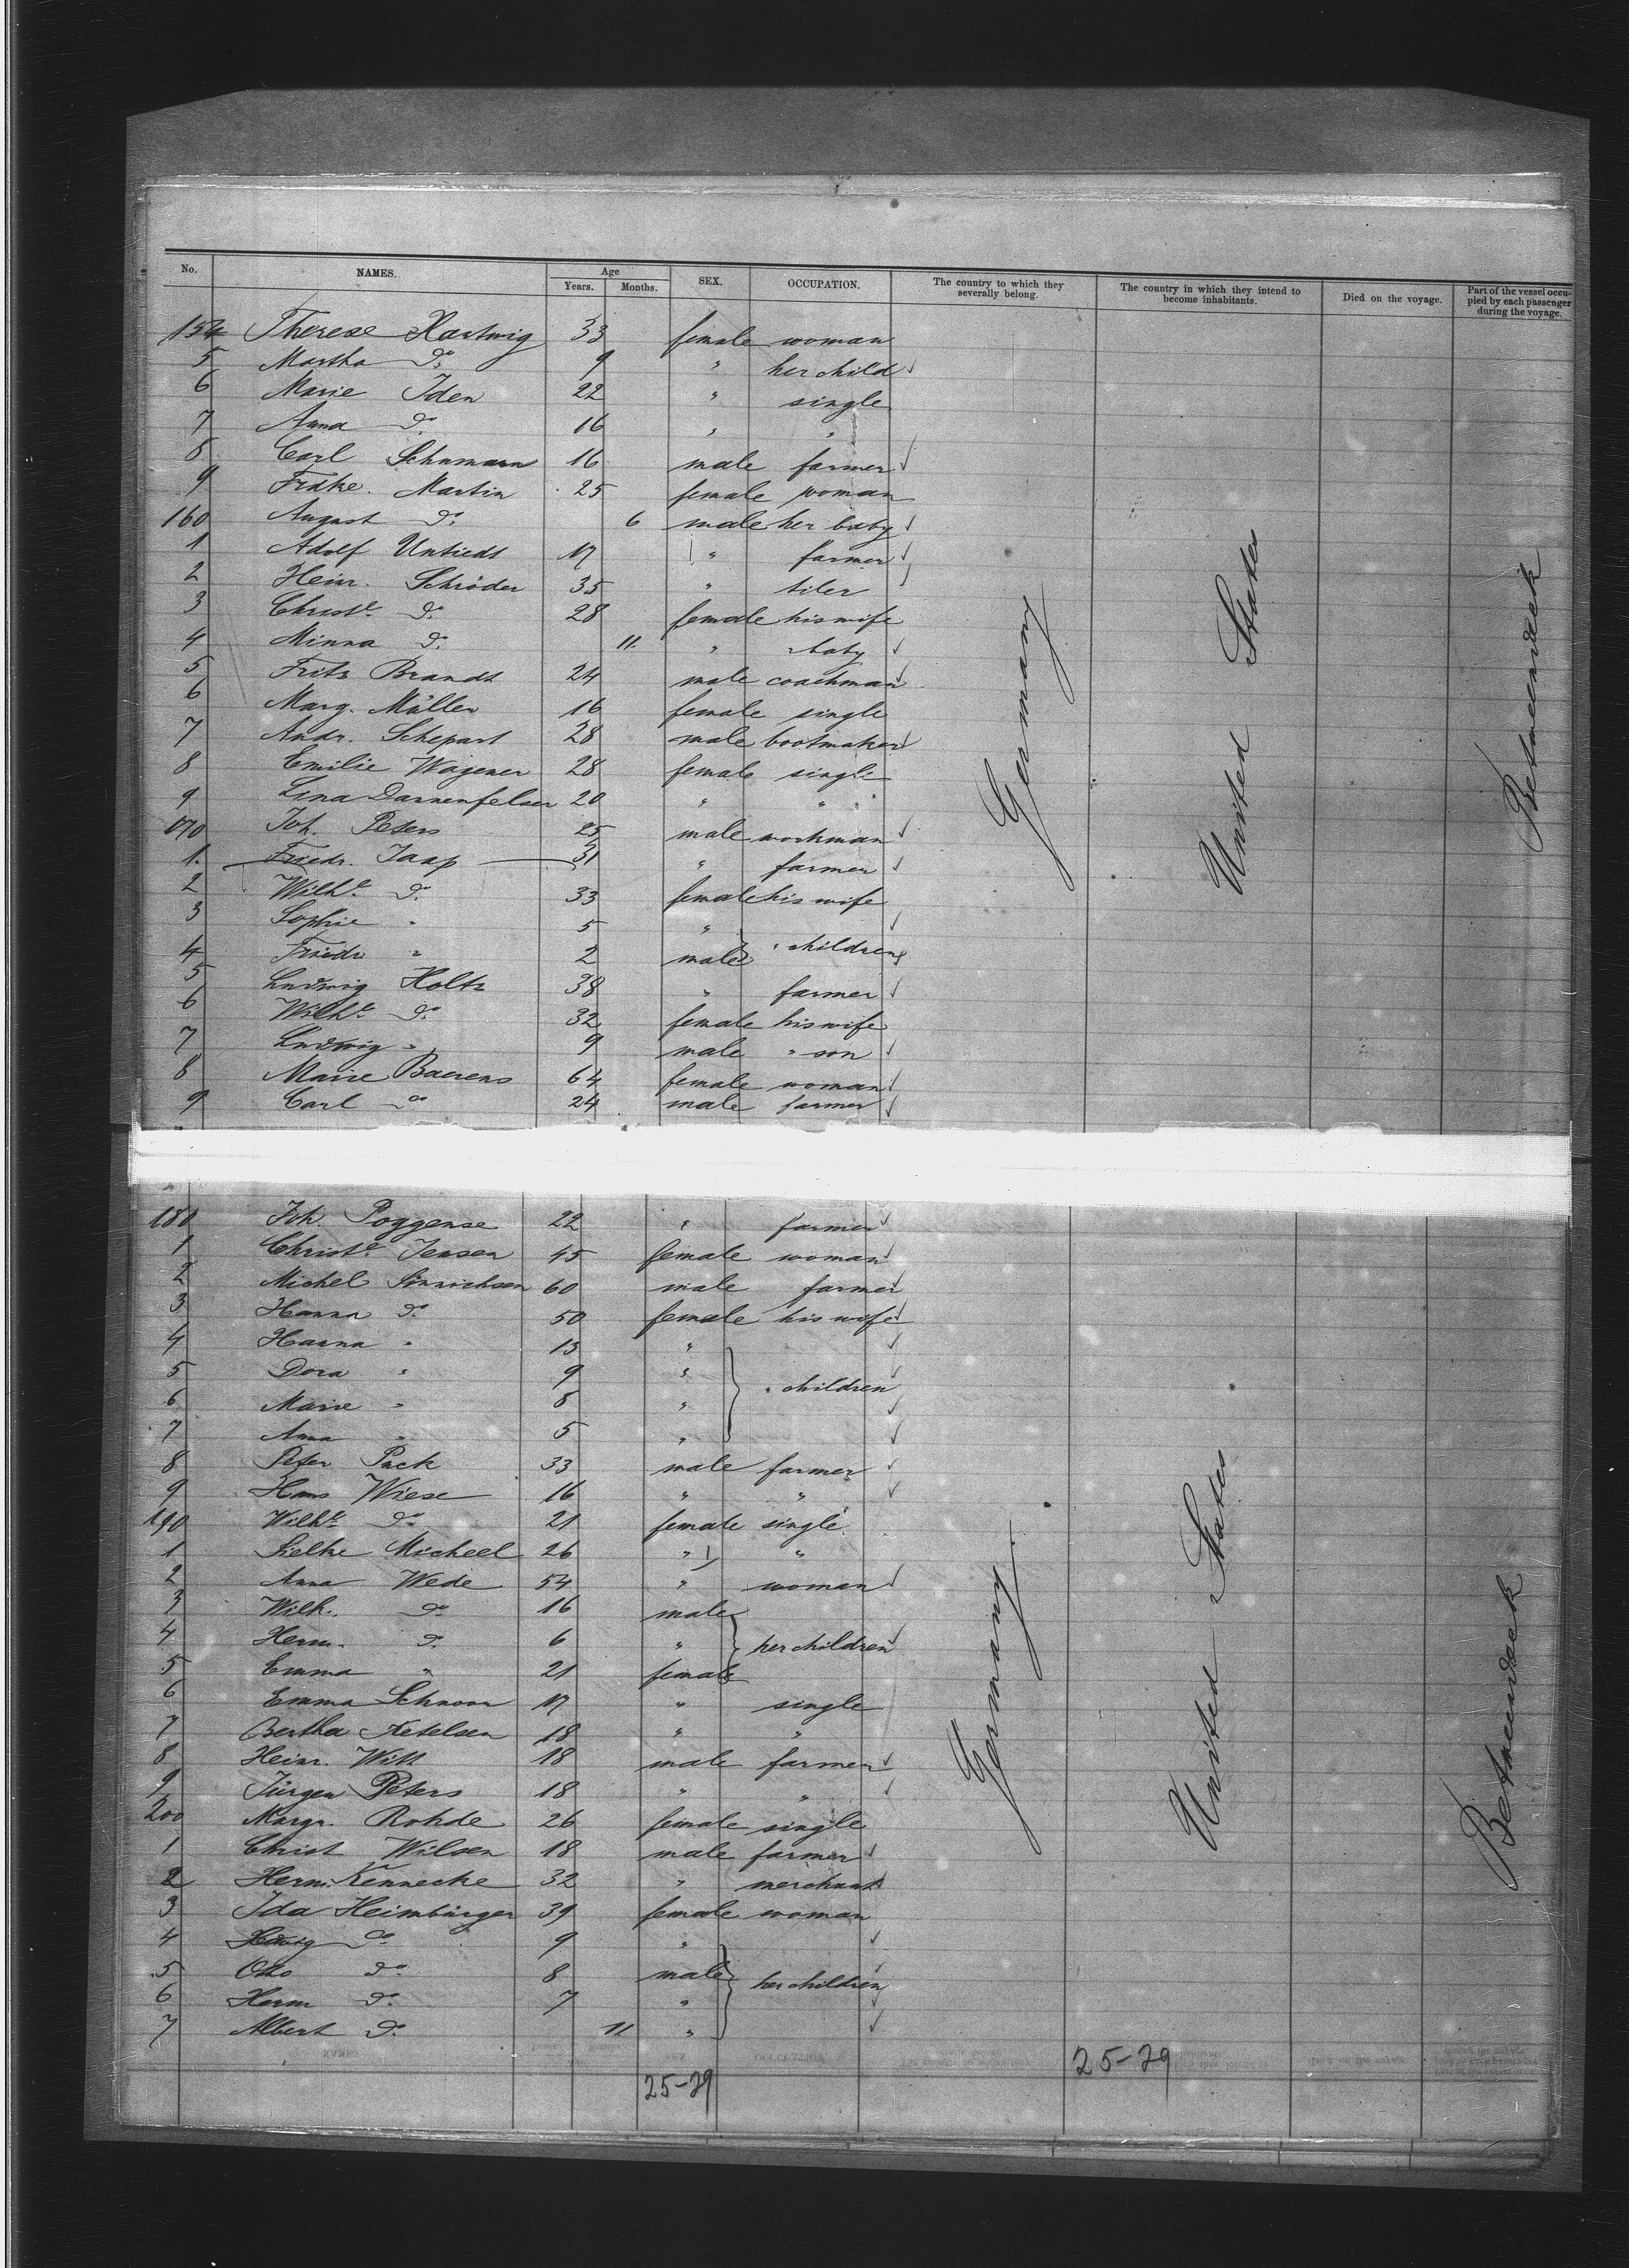 No. NAMES. Age Years. Months. SEX. OCCUPATION. The country to which they severally belong. The country in which they intend to become inhabitants. Died on the voyage. Part of the vessel occupied by each passenger during the voyage.
154 Therese Hartwig 33 female woman
5 Martha do 9 " her child
6 Marie Iden 22 " single
7 Anna do 16 " "
8 Carl Schumann 16 male farmer
9 Frdke. Martin 25 female woman
160 August do 6 male her baby
1 Adolf Untiedt 17 " farmer
2 Heinr. Schröder 35 " tiler
3 Christe do 28 female his wife
4 Minna do 11 " " baby
5 Fritz Brandt 24 male coachman
6 Marg. Müller 16 female single
7 Andr. Schepart 28 male bootmaker
8 Emilie Wagener 28 female single
9 Lina Dannenfelser 20 " "
170 Joh. Peters 25 male workman
1 Friedr. Jaap 31 " farmer
2 Wilhe do 33 female his wife
3 Sophie " 5 "
4 Friedr. " 2 male " children
5 Ludwig Holtz 38 " farmer
6 Wilhe do 32 female his wife
7 Ludwig " 9 male " son
8 Marie Baerens 64 female woman
9 Carl do 24 male farmer
180 Joh. Poggense 22 " farmer
1 Christe Jensen 45 female woman
2 Michel Sönnichsen 60 male farmer
3 Hanna do 50 female his wife
4 Hanna " 13 "
5 Dora " 9 " " children
6 Marie " 8 "
7 Anna " 5 "
8 Peter Pack 33 male farmer
9 Hans Wiese 16 " "
190 Wilhe do 21 female single
1 Sielke Micheel 26 " "
2 Anna Wede 54 " woman
3 Wilh. do 16 male
4 Herm. do 6 " her children
5 Emma " 21 female
6 Emma Schnoor 17 " single
7 Bertha Ketelsen 18 " "
8 Heinr. Witt 18 male farmer
9 Jürgen Peters 18 " "
200 Margr. Rohde 26 female single
1 Christ Wilsen 18 male farmer
2 Herm. Kennecke 32 " merchant
3 Ida Heimbürger 39 female woman
4 Hedwig do 9 "
5 Otto do 8 male her children
6 Herm do 7 "
7 Albert do 11 "
Germany
United States
Betweendeck
Germany
United States
Betweendeck
25-29
25-29